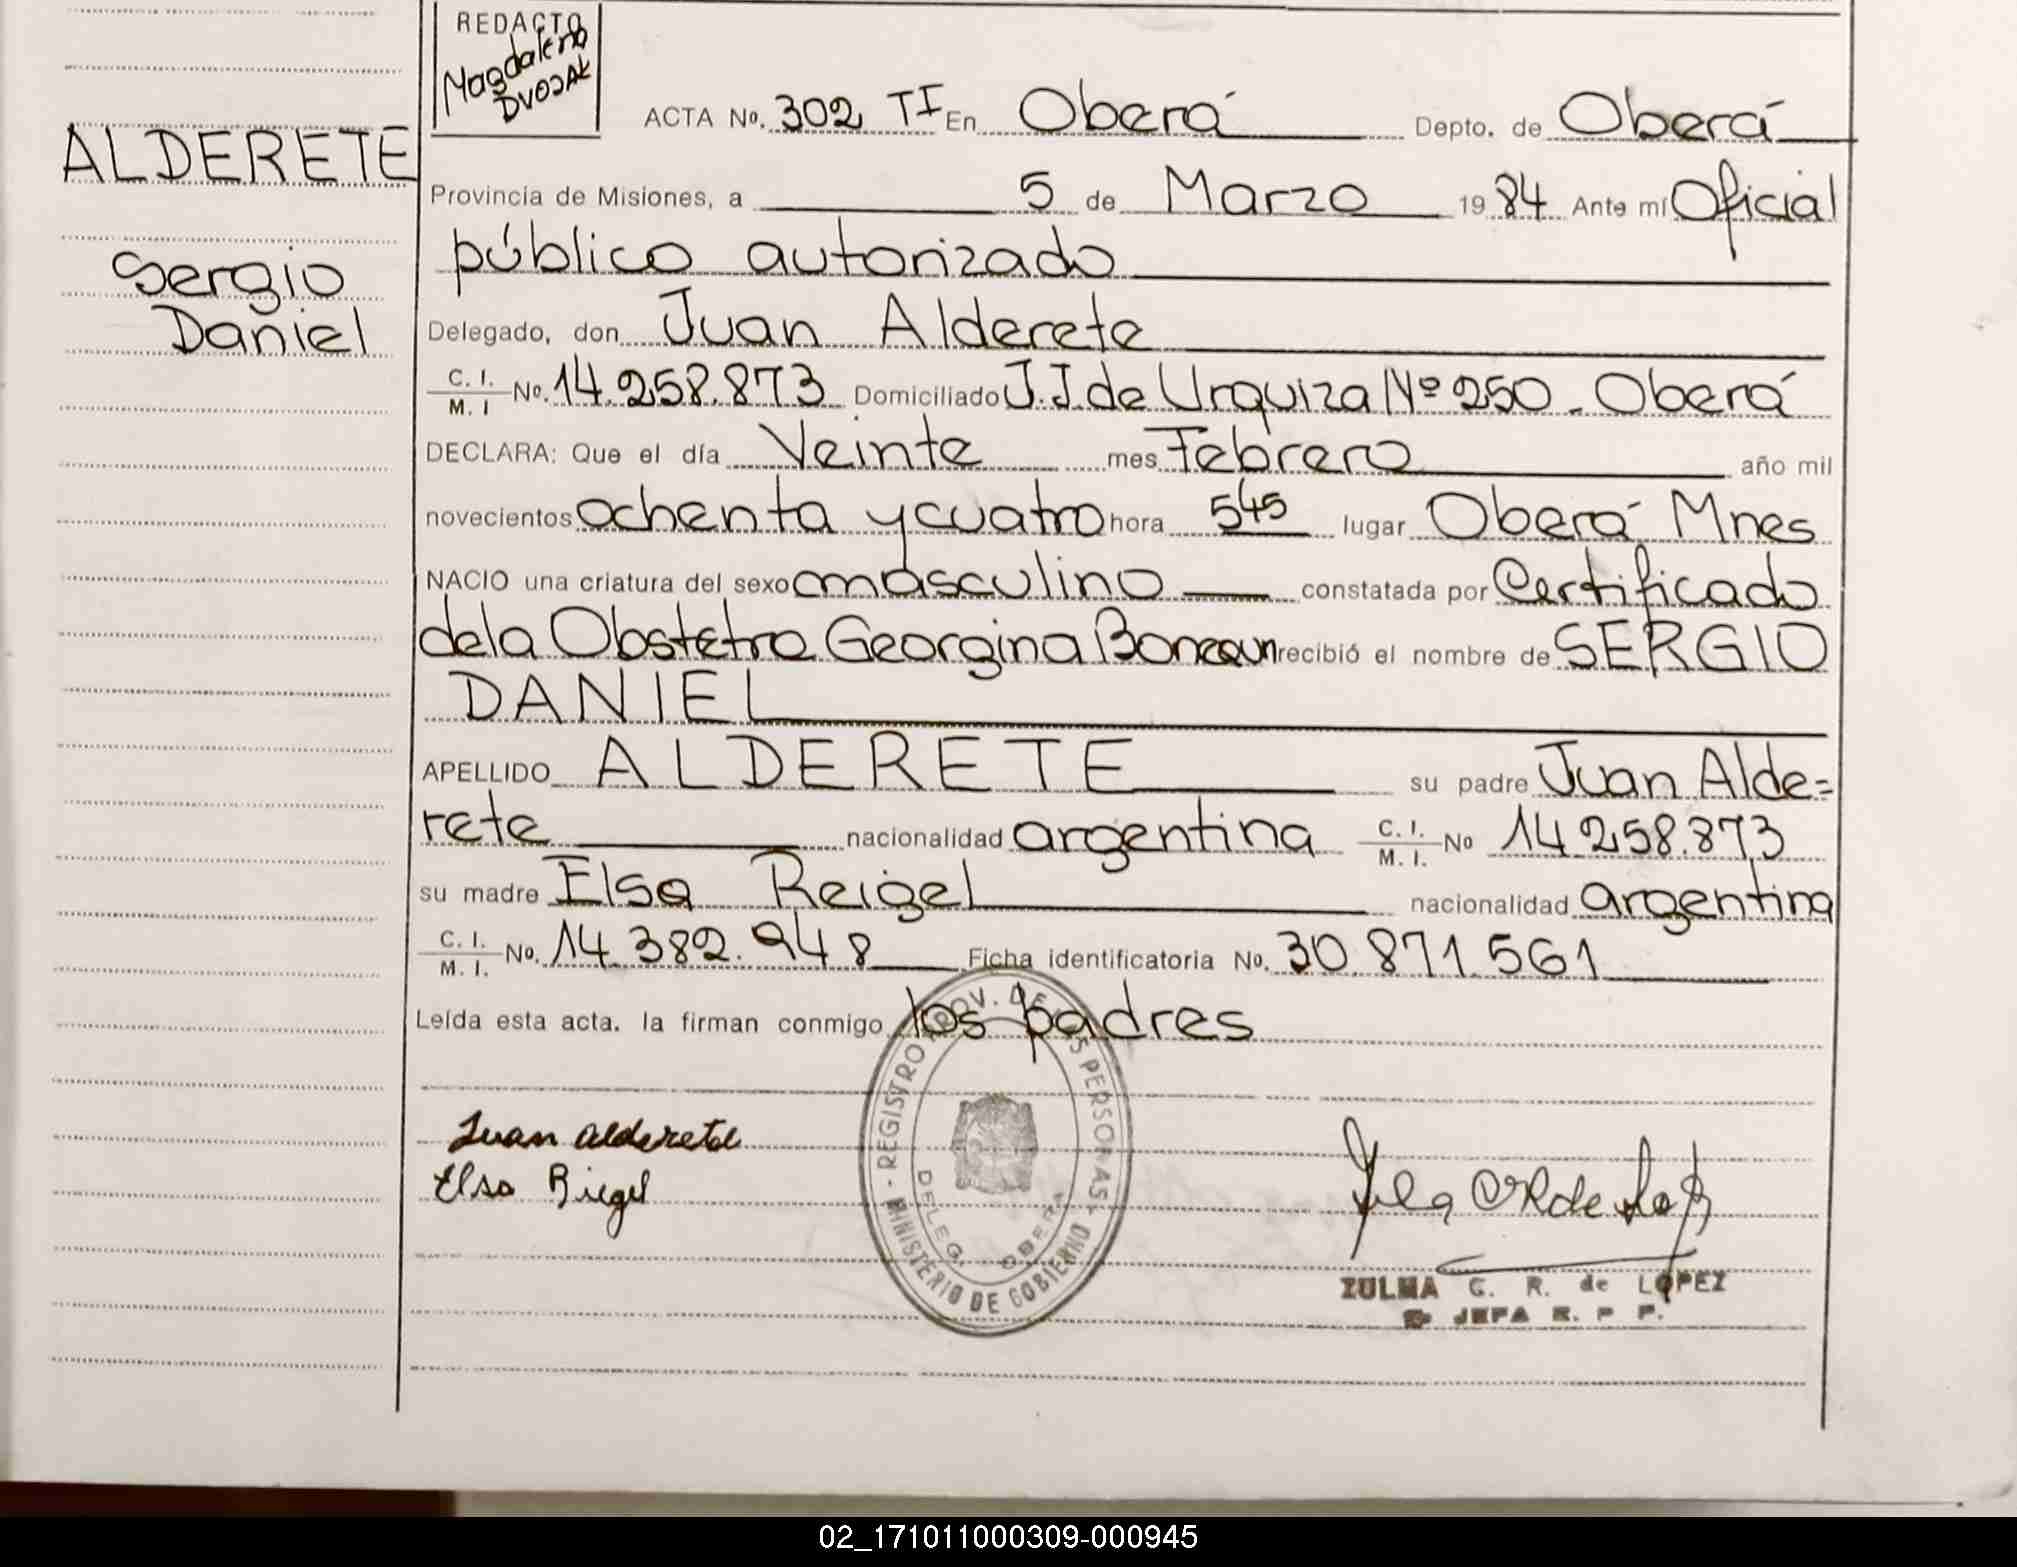 REDACTO
Magdalena
DVOJAK
ACTA No. 302 TI En Oberá Depto. de Oberá
ALDERETE
Provincia de Misiones, a 5 de Marzo 1984 Ante mí Oficial
público autorizado
Sergio
Daniel
Delegado, don Juan Alderete
C. I. / M. I No. 14.258.873 Domiciliado J.J. de Urquiza Nº 250 - Oberá
DECLARA: Que el día Veinte mes Febrero año mil
novecientos ochenta y cuatro hora 545 lugar Oberá Mnes
NACIO una criatura del sexo masculino constatada por Certificado
de la Obstetra Georgina recibió el nombre de SERGIO
DANIEL
APELLIDO ALDERETE su padre Juan Alde=
rete nacionalidad argentina C. I. / M. I. No 14.258.873
su madre Elsa Reigel nacionalidad argentina
C. I. / M. I. No. 14.382.948 Ficha identificatoria No. 30.871.561
Leída esta acta. la firman conmigo los padres
Juan alderete
Elsa Riegel
REGISTRO PROV. DE LAS PERSONAS
MINISTERIO DE GOBIERNO
DELEG. OBERA
ZULMA C. R. de LOPEZ
JEFA R. P P.
02_171011000309-000945